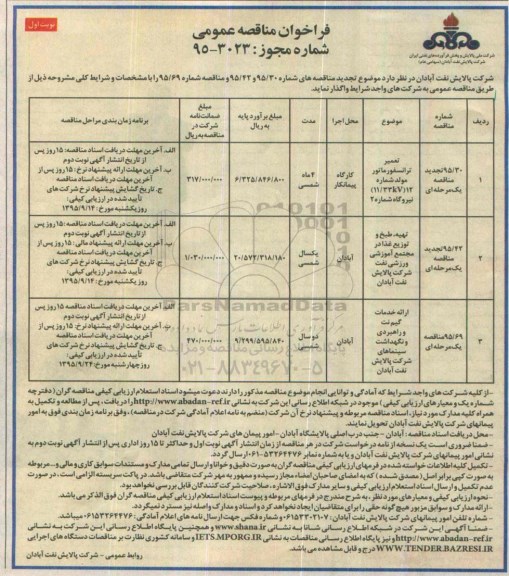 نوبت اول
فراخوان مناقصه عمومی
شماره مجوز: ۳۰۲۳-۹۵
شرکت ملی پالایش و پخش فرآورده‌های نفتی ایران
شرکت پالایش نفت آبادان (سهامی عام)
شرکت پالایش نفت آبادان در نظر دارد موضوع تجدید مناقصه های شماره ۹۵/۳۰ و ۹۵/۴۲ و مناقصه شماره ۹۵/۶۹ را با مشخصات و شرایط کلی مشروحه ذیل از
طریق مناقصه عمومی به شرکت های واجد شرایط واگذار نماید.
ردیف | شماره مناقصه | موضوع | محل اجرا | مدت | مبلغ برآورد پایه به ریال | مبلغ ضمانت‌نامه شرکت در مناقصه به ریال | برنامه زمان بندی مراحل مناقصه
۱ | ۹۵/۳۰ تجدید مناقصه یک مرحله ای | تعمیر ترانسفورماتور مولد شماره ۱۲ (۱۱/۳۳kV) نیروگاه شماره ۲ | کارگاه پیمانکار | ۴ ماه شمسی | ۶/۳۲۵/۸۴۶/۸۰۰ | ۳۱۷/۰۰۰/۰۰۰ | الف. آخرین مهلت دریافت اسناد مناقصه: ۱۵ روز پس از تاریخ انتشار آگهی نوبت دوم
ب. آخرین مهلت ارائه پیشنهاد نرخ: ۱۵ روز پس از آخرین مهلت دریافت اسناد مناقصه
ج. تاریخ گشایش پیشنهاد نرخ شرکت های تأیید شده در ارزیابی کیفی:
روز یکشنبه مورخ: ۱۳۹۵/۹/۱۴
۲ | ۹۵/۴۲ تجدید مناقصه یک مرحله ای | تهیه، طبخ و توزیع غذا در مجتمع آموزشی ورزشی نفت شرکت پالایش نفت آبادان | آبادان | یکسال شمسی | ۲۰/۵۷۲/۳۱۸/۱۸۰ | ۱/۰۳۰/۰۰۰/۰۰۰ | الف. آخرین مهلت دریافت اسناد مناقصه: ۱۵ روز پس از تاریخ انتشار آگهی نوبت دوم
ب. آخرین مهلت ارائه پیشنهاد مالی: ۱۵ روز پس از آخرین مهلت دریافت اسناد مناقصه
ج. تاریخ گشایش پیشنهاد نرخ شرکت های تأیید شده در ارزیابی کیفی:
روز یکشنبه مورخ: ۱۳۹۵/۹/۱۴
۳ | ۹۵/۶۹ مناقصه یک مرحله ای | ارائه خدمات گیم نت و راهبردی و نگهداشت سینماهای شرکت پالایش نفت آبادان | آبادان | دو سال شمسی | ۹/۲۹۹/۵۹۵/۸۴۰ | ۴۷۰/۰۰۰/۰۰۰ | الف. آخرین مهلت دریافت اسناد مناقصه: ۱۵ روز پس از تاریخ انتشار آگهی نوبت دوم
ب. آخرین مهلت ارائه پیشنهاد نرخ: ۱۵ روز پس از آخرین مهلت دریافت اسناد مناقصه
ج. تاریخ گشایش پیشنهاد نرخ شرکت های تأیید شده در ارزیابی کیفی:
روز چهارشنبه مورخ: ۱۳۹۵/۹/۲۴
ParsNamadData
۰۲۱-۸۸۳۴۹۶۷۰-۵
- از کلیه شرکت های واجد شرایط که آمادگی و توانایی انجام موضوع مناقصه مذکور را دارند دعوت میشود اسناد استعلام ارزیابی کیفی مناقصه گران (دفترچه
شماره یک و معیارهای ارزیابی کیفی) موجود در شبکه اطلاع رسانی این شرکت به نشانی http://www.abadan-ref.ir را دریافت، پس از مطالعه و تکمیل به
همراه کلیه مدارک مورد نیاز، اسناد مناقصه مربوطه و پیشنهاد نرخ آن شرکت (منضم به نامه اعلام آمادگی شرکت در مناقصه)، وفق برنامه زمان بندی فوق به امور
پیمانهای شرکت پالایش نفت آبادان تحویل نمایند.
- محل دریافت اسناد مناقصه: آبادان - جنب درب اصلی پالایشگاه آبادان - امور پیمان های شرکت پالایش نفت آبادان
- ضمنا ضروری است یک نسخه از نامه درخواست شرکت در هر مناقصه از زمان انتشار آگهی نوبت اول و حداکثر تا ۱۵ روز اداری پس از انتشار آگهی نوبت دوم به
نشانی امور پیمانهای شرکت پالایش نفت آبادان و یا به شماره نمابر ۰۶۱-۵۳۲۶۴۴۷۶ ارسال گردد.
- تکمیل کلیه اطلاعات خواسته شده در فرمهای ارزیابی کیفی مناقصه گران به صورت دقیق و خوانا و ارسال تمامی مدارک و مستندات سوابق کاری و مالی و... مربوطه
به صورت کپی برابر اصل (مصدق شده) که به امضای صاحبان امضاء مجاز رسیده و ممهور به مهر شرکت متقاضی باشد، در پاکت سربسته الزامی است، در صورت
عدم تکمیل و ارسال اسناد استعلام ارزیابی کیفی و سایر مدارک فوق الاشاره، صلاحیت شرکت کنندگان قابل بررسی نخواهد بود.
- نحوه ارزیابی کیفی و معیارهای مورد نظر، به شرح مندرج در فرمهای مربوطه و پیوست اسناد استعلام ارزیابی کیفی مناقصه گران فوق الذکر می باشد.
- ارائه مدارک و سوابق مزبور هیچ گونه حقی را برای متقاضیان ایجاد نخواهد کرد و اسناد و مدارک واصله نیز مسترد نمیگردد.
- شماره تلفن امور پیمانهای شرکت پالایش نفت آبادان: ۰۶۱۵۳۲۰۳۱۰۷ و شماره فکس جهت ارسال نامه های اعلام آمادگی: ۰۶۱۵۳۲۶۴۴۷۶ میباشد.
- ضمناً آگهی این شرکت در شبکه اطلاع رسانی شانا به نشانی www.shana.ir و همچنین پایگاه اطلاع رسانی این شرکت به نشانی
http://www.abadan-ref.ir و نیز پایگاه اطلاع رسانی مناقصات به نشانی IETS.MPORG.IR و سامانه کشوری نظارت بر مناقصات دستگاه های اجرایی
WWW.TENDER.BAZRESI.IR درج و قابل مشاهده می باشد.
روابط عمومی - شرکت پالایش نفت آبادان